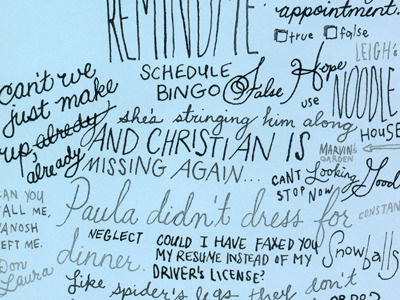 REMIND ME
appointment.
true false
LEIGH'S
can't we
just make
up, already,
already
SCHEDULE
BINGO
False Hope
use
NOODLE
HOUSE
she's stringing him along
AND CHRISTIAN IS
MISSING AGAIN...
MARVIN'S
GARDEN
CAN'T Looking
STOP NOW
Good
CAN YOU
CALL ME,
LEFT ME.
Don
Laura
Paula didn't dress for
dinner.
CONSTAN
NEGLECT
COULD I HAVE FAXED YOU
MY RESUME INSTEAD OF MY
DRIVER'S LICENSE?
Snowballs
like spider's legs they don't